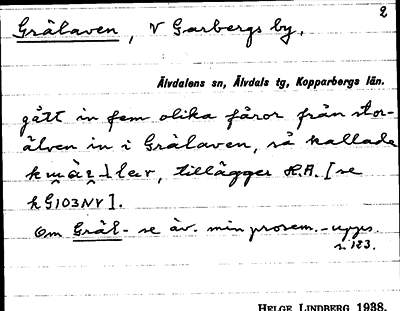 2
Grälaven, V Garbergs by.
Älvdalens sn, Älvdals tg, Kopparbergs län.
gått in fem olika fåror från stor-
älven in i Grälaven, så kallade
tillägger H.A. [se
kG103NV].
Om Gräl- se äv. min prosem.-upps.
s. 123.
HELGE LINDBERG 1938.